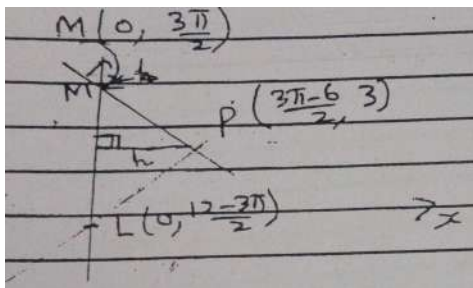 M(0, 3π/2)
M
P (3π-6/2, 3)
h
L(0, 12-3π/2)
x